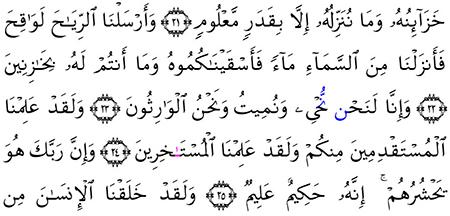 خَزَآئِنُهُۥ وَمَا نُنَزِّلُهُۥٓ إِلَّا بِقَدَرٍ مَّعْلُومٍ ﴿٢١﴾ وَأَرْسَلْنَا ٱلرِّيَـٰحَ لَوَٰقِحَ
فَأَنزَلْنَا مِنَ ٱلسَّمَآءِ مَآءً فَأَسْقَيْنَـٰكُمُوهُ وَمَآ أَنتُمْ لَهُۥ بِخَـٰزِنِينَ
﴿٢٢﴾ وَإِنَّا لَنَحْن نُّحْيِۦ وَنُمِيتُ وَنَحْنُ ٱلْوَٰرِثُونَ ﴿٢٣﴾ وَلَقَدْ عَلِمْنَا
ٱلْمُسْتَقْدِمِينَ مِنكُمْ وَلَقَدْ عَلِمْنَا ٱلْمُسْتَـٔخِرِينَ ﴿٢٤﴾ وَإِنَّ رَبَّكَ هُوَ
يَحْشُرُهُمْ ۚ إِنَّهُۥ حَكِيمٌ عَلِيمٌ ﴿٢٥﴾ وَلَقَدْ خَلَقْنَا ٱلْإِنسَـٰنَ مِن